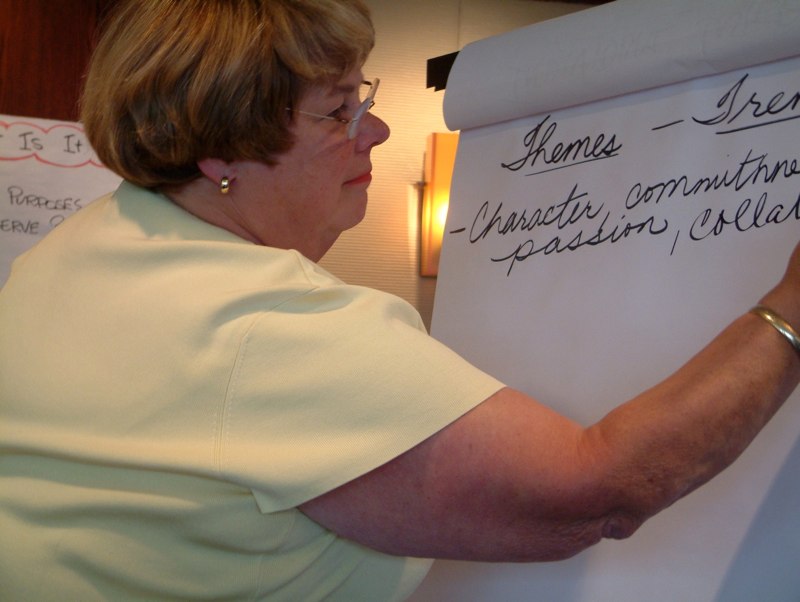 Is It
PURPOSES
ERVE
Themes – Tren
- Character, commitme
passion, colla